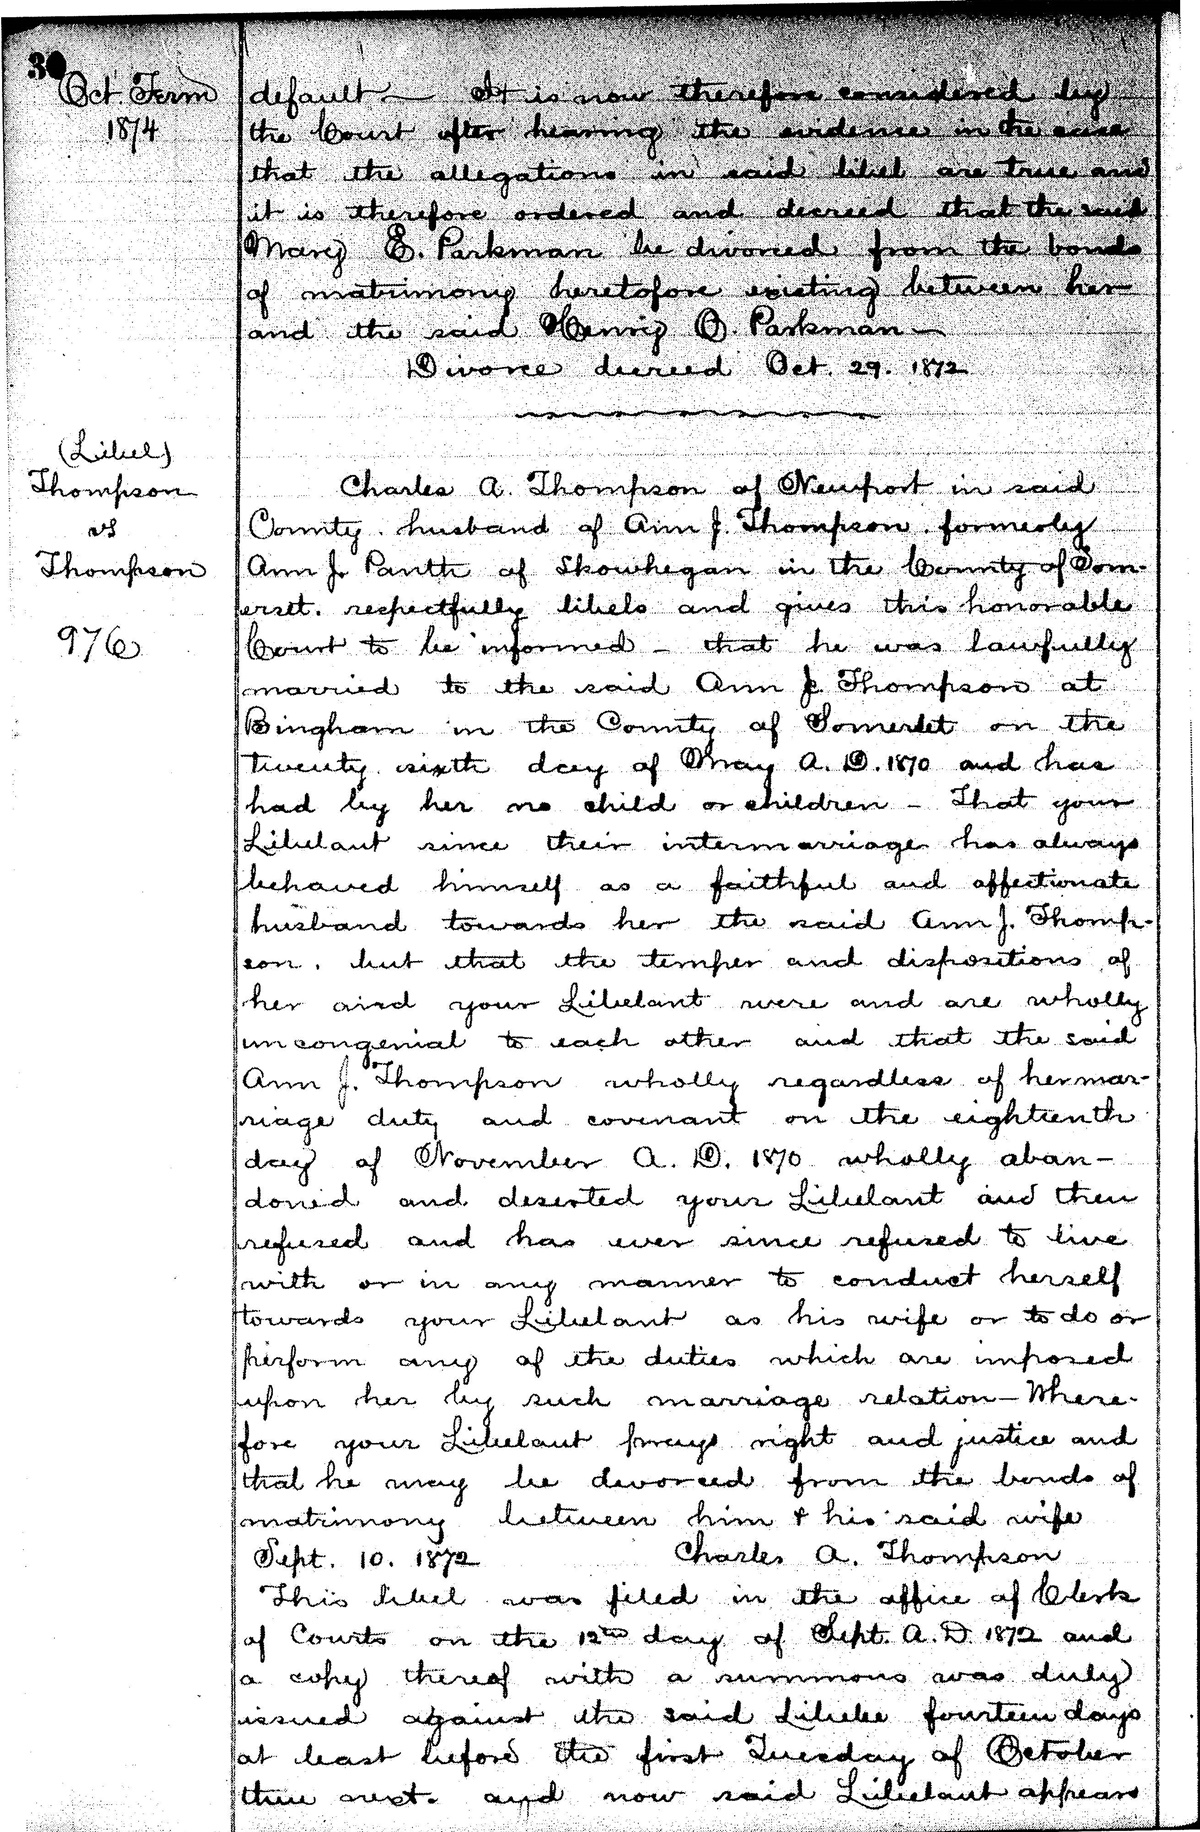 30
Oct. Term
1874
default — It is now therefore considered by
the Court after hearing the evidence in the case
that the allegations in said libel are true and
it is therefore ordered and decreed that the said
Mary E. Parkman be divorced from the bonds
of matrimony heretofore existing between her
and the said Henry O. Parkman —
Divorce decreed Oct. 29. 1872
(Libel)
Thompson
vs
Thompson
976
Charles A. Thompson of Newport in said
County. husband of Ann J. Thompson. formerly
Ann J. Panth of Skowhegan in the County of Som-
erset. respectfully libels and gives this honorable
Court to be informed - that he was lawfully
married to the said Ann J. Thompson at
Bingham in the County of Somerset on the
twenty sixth day of May A. D. 1870 and has
had by her no child or children - That your
Libelant since their intermarriage has always
behaved himself as a faithful and affectionate
husband towards her the said Ann J. Thomp-
son. but that the temper and dispositions of
her and your Libelant were and are wholly
uncongenial to each other and that the said
Ann J. Thompson wholly regardless of her mar-
riage duty and covenant on the eighteenth
day of November A. D. 1870 wholly aban-
doned and deserted your Libelant and then
refused and has ever since refused to live
with or in any manner to conduct herself
towards your Libelant as his wife or to do or
perform any of the duties which are imposed
upon her by such marriage relation - Where-
fore your Libelant prays right and justice and
that he may be divorced from the bonds of
matrimony between him & his said wife
Sept. 10. 1872 Charles A. Thompson
This libel was filed in the office of Clerk
of Courts on the 12th day of Sept. A. D. 1872 and
a copy thereof with a summons was duly
issued against the said Libelee fourteen days
at least before the first Tuesday of October
then next. and now said Libelant appears